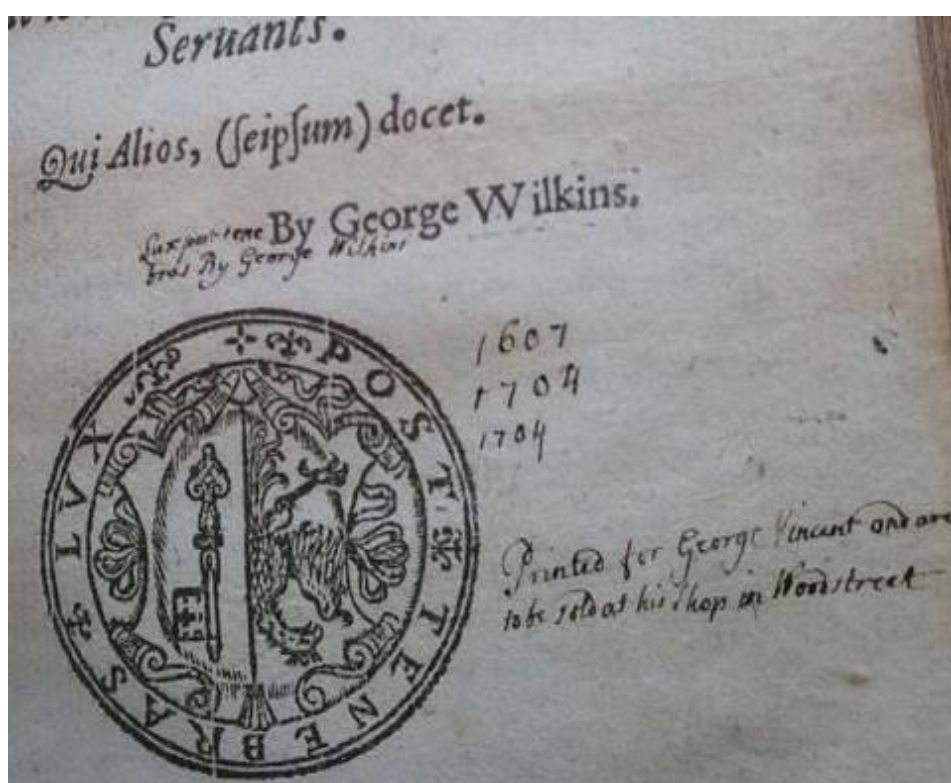 Seruants.
Qui Alios, (ſeipſum) docet.
By George Wilkins.
Lux post tene
bras By George Wilkins
POST TENEBRAS LVX
1607
1704
1704
Printed for George Vincent and are
to be sold at his shop in Woodstreet